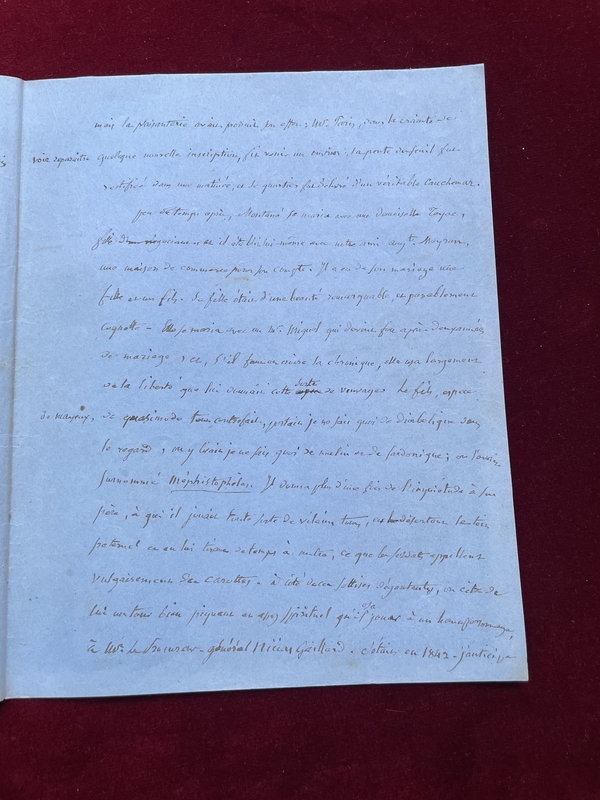 mais la plaisanterie avait produit son effet; Mr. Tiris, dans la crainte de
voir reparaître quelque nouvelle inscription, fit venir un ouvrier. La porte du seuil fut
rectifiée dans une matinée, et le quartier fut délivré d'un véritable cauchemar.
peu de temps après, Montané se maria avec une demoiselle
fille d'un négociant et il établit lui-même avec notre ami augte.
une maison de commerce pour son compte. Il a eu de son mariage une
fille et un fils. Sa fille était d'une beauté remarquable, et passablement
coquette - Elle se maria avec un Mr. Miquel qui devint fou après deux années
de mariage; et, s'il faut en croire la chronique, elle usa largement
de la liberté que lui donnait cette sorte de veuvage. Le fils, espèce
de mayeux, de quasimodo tout contrefait, portait je ne sais quoi de diabolique dans
le regard; on y lisait je ne sais quoi de malin et de sardonique; on l'avait
surnommé Méphistophélès. Il donna plus d'une fois de l'inquiétude à son
père, à qui il jouait toute sorte de vilains tours, désertant le toit
paternel et en lui tirant de temps à autre, ce que les soldats appellent
vulgairement des carottes. à côté de ces sottises dégoutantes, on cite de
lui un tour bien piquant et assez spirituel qu'il joua à un honnête personnage,
à Mr. le Procureur-général Nicias Gaillard. c'était en 1842.